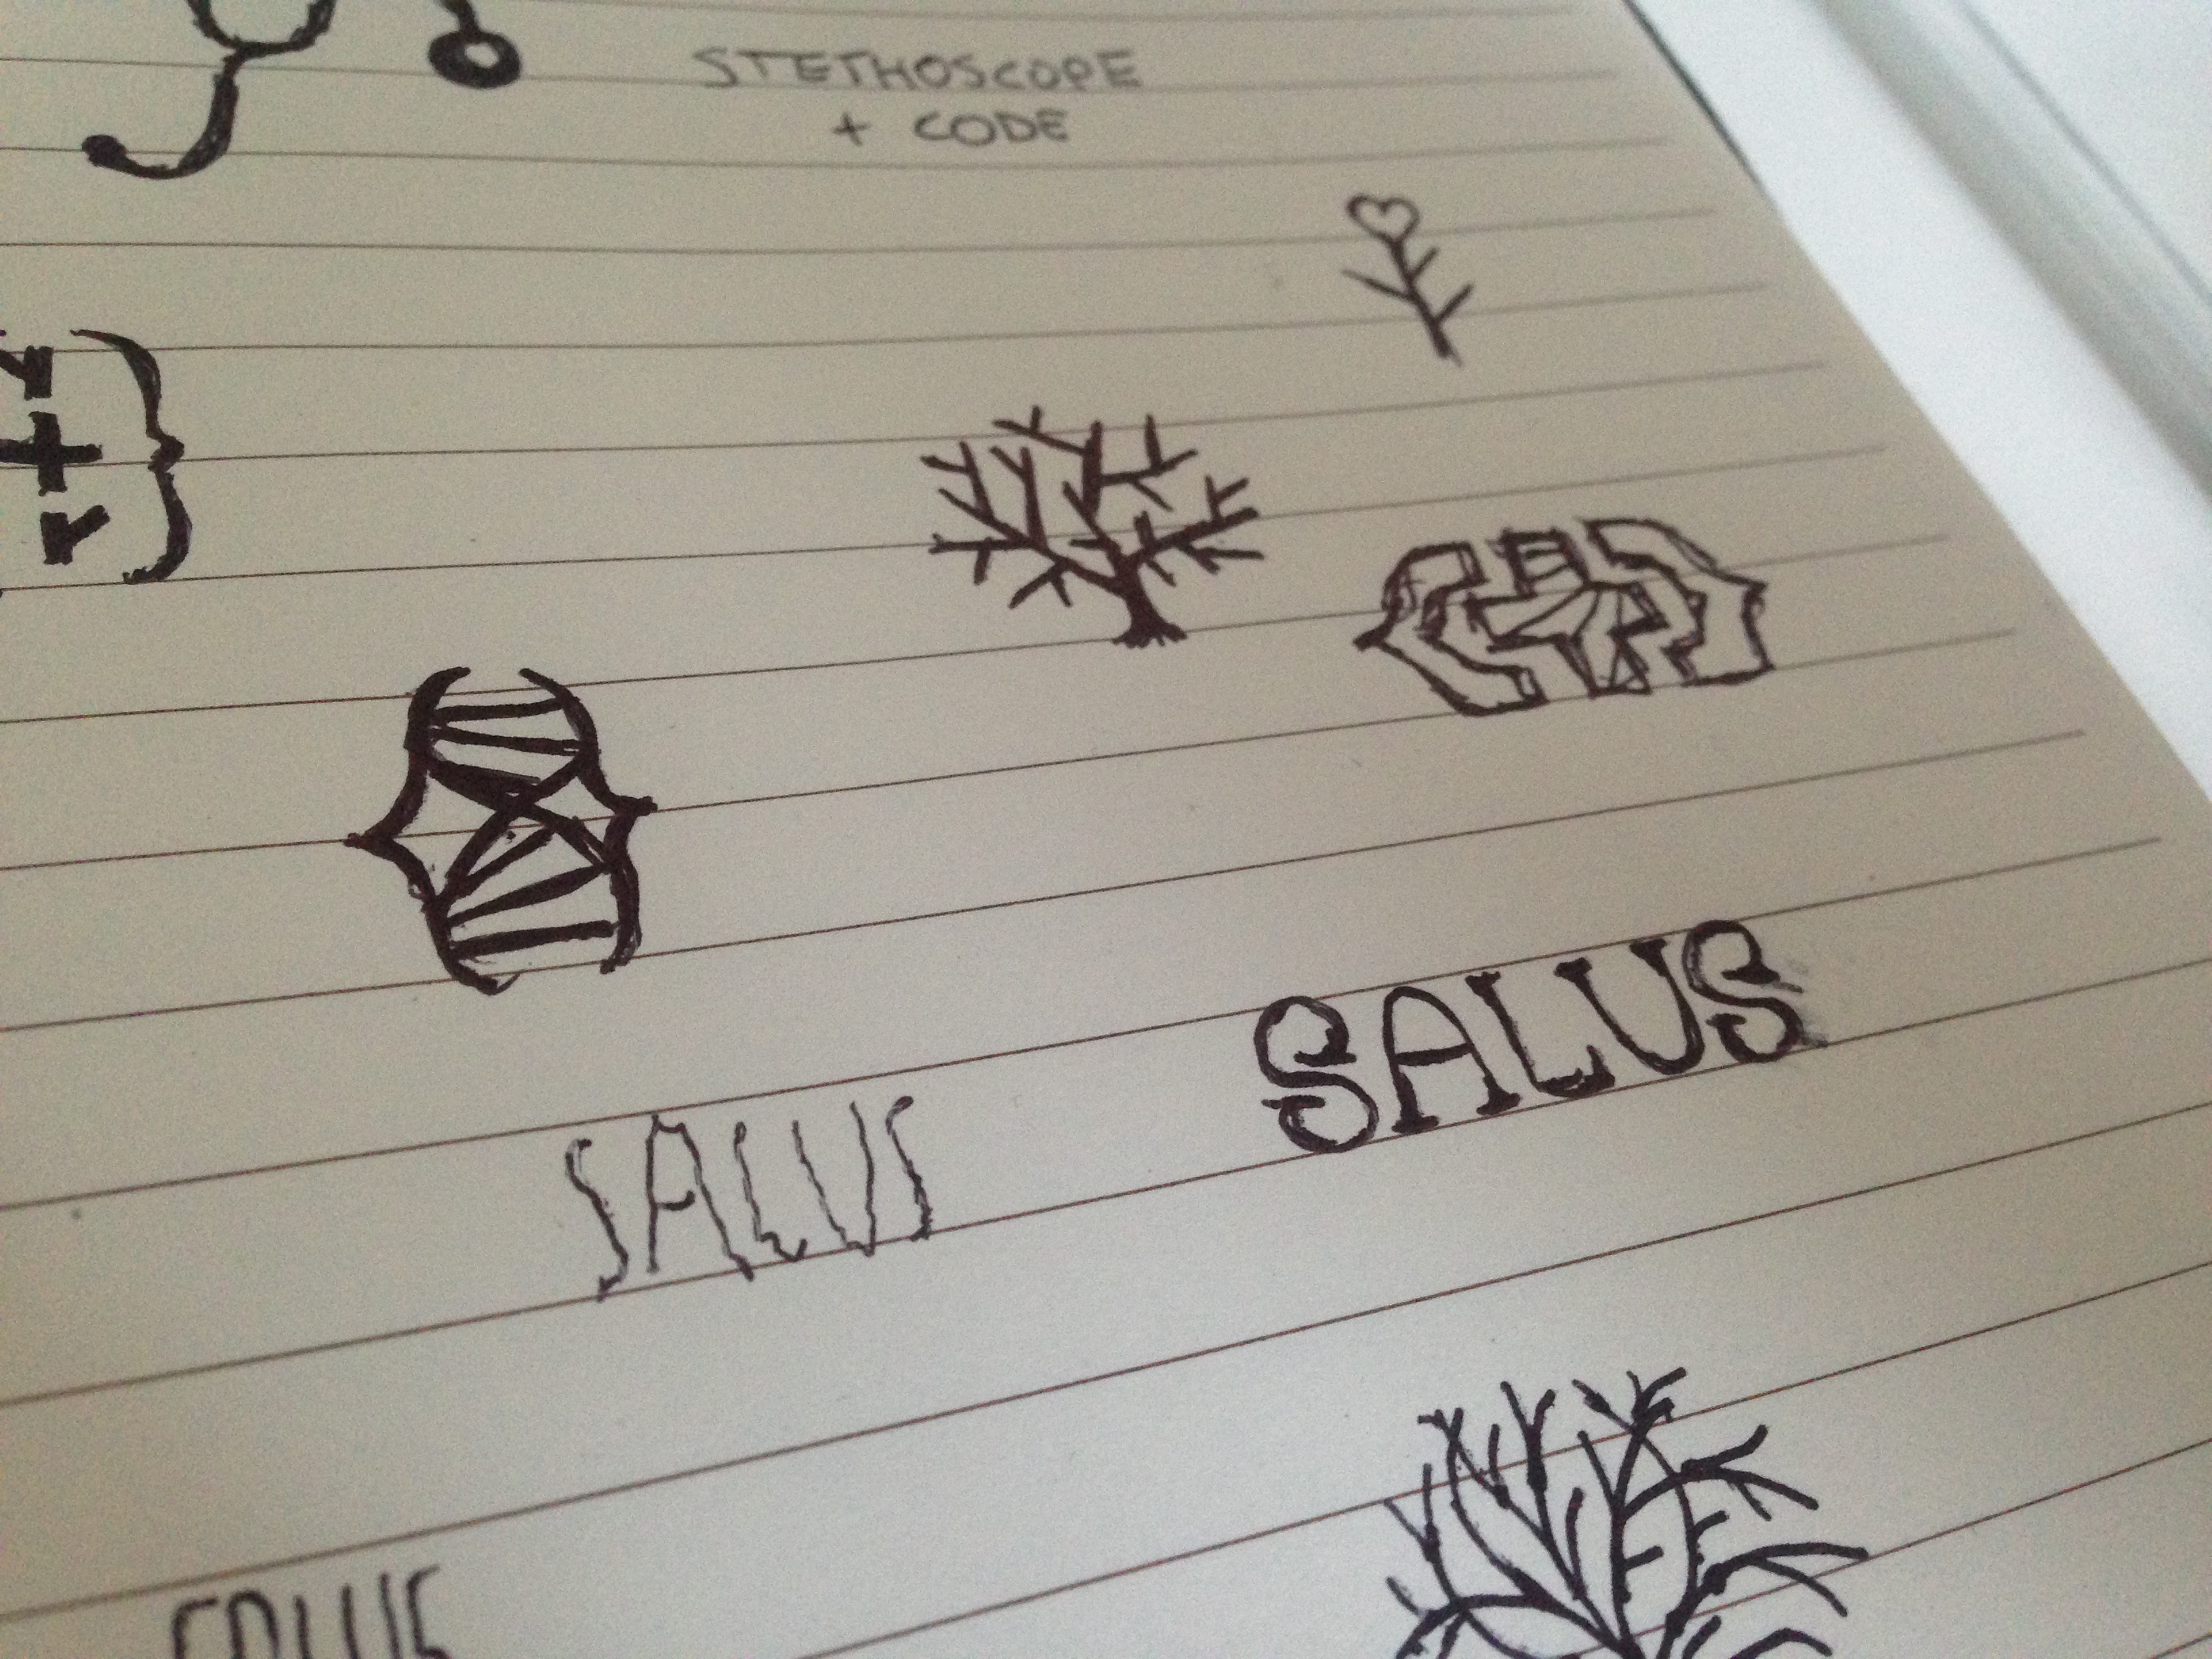 STETHOSCOPE
+ CODE
SALUS
SALUS
SALUS